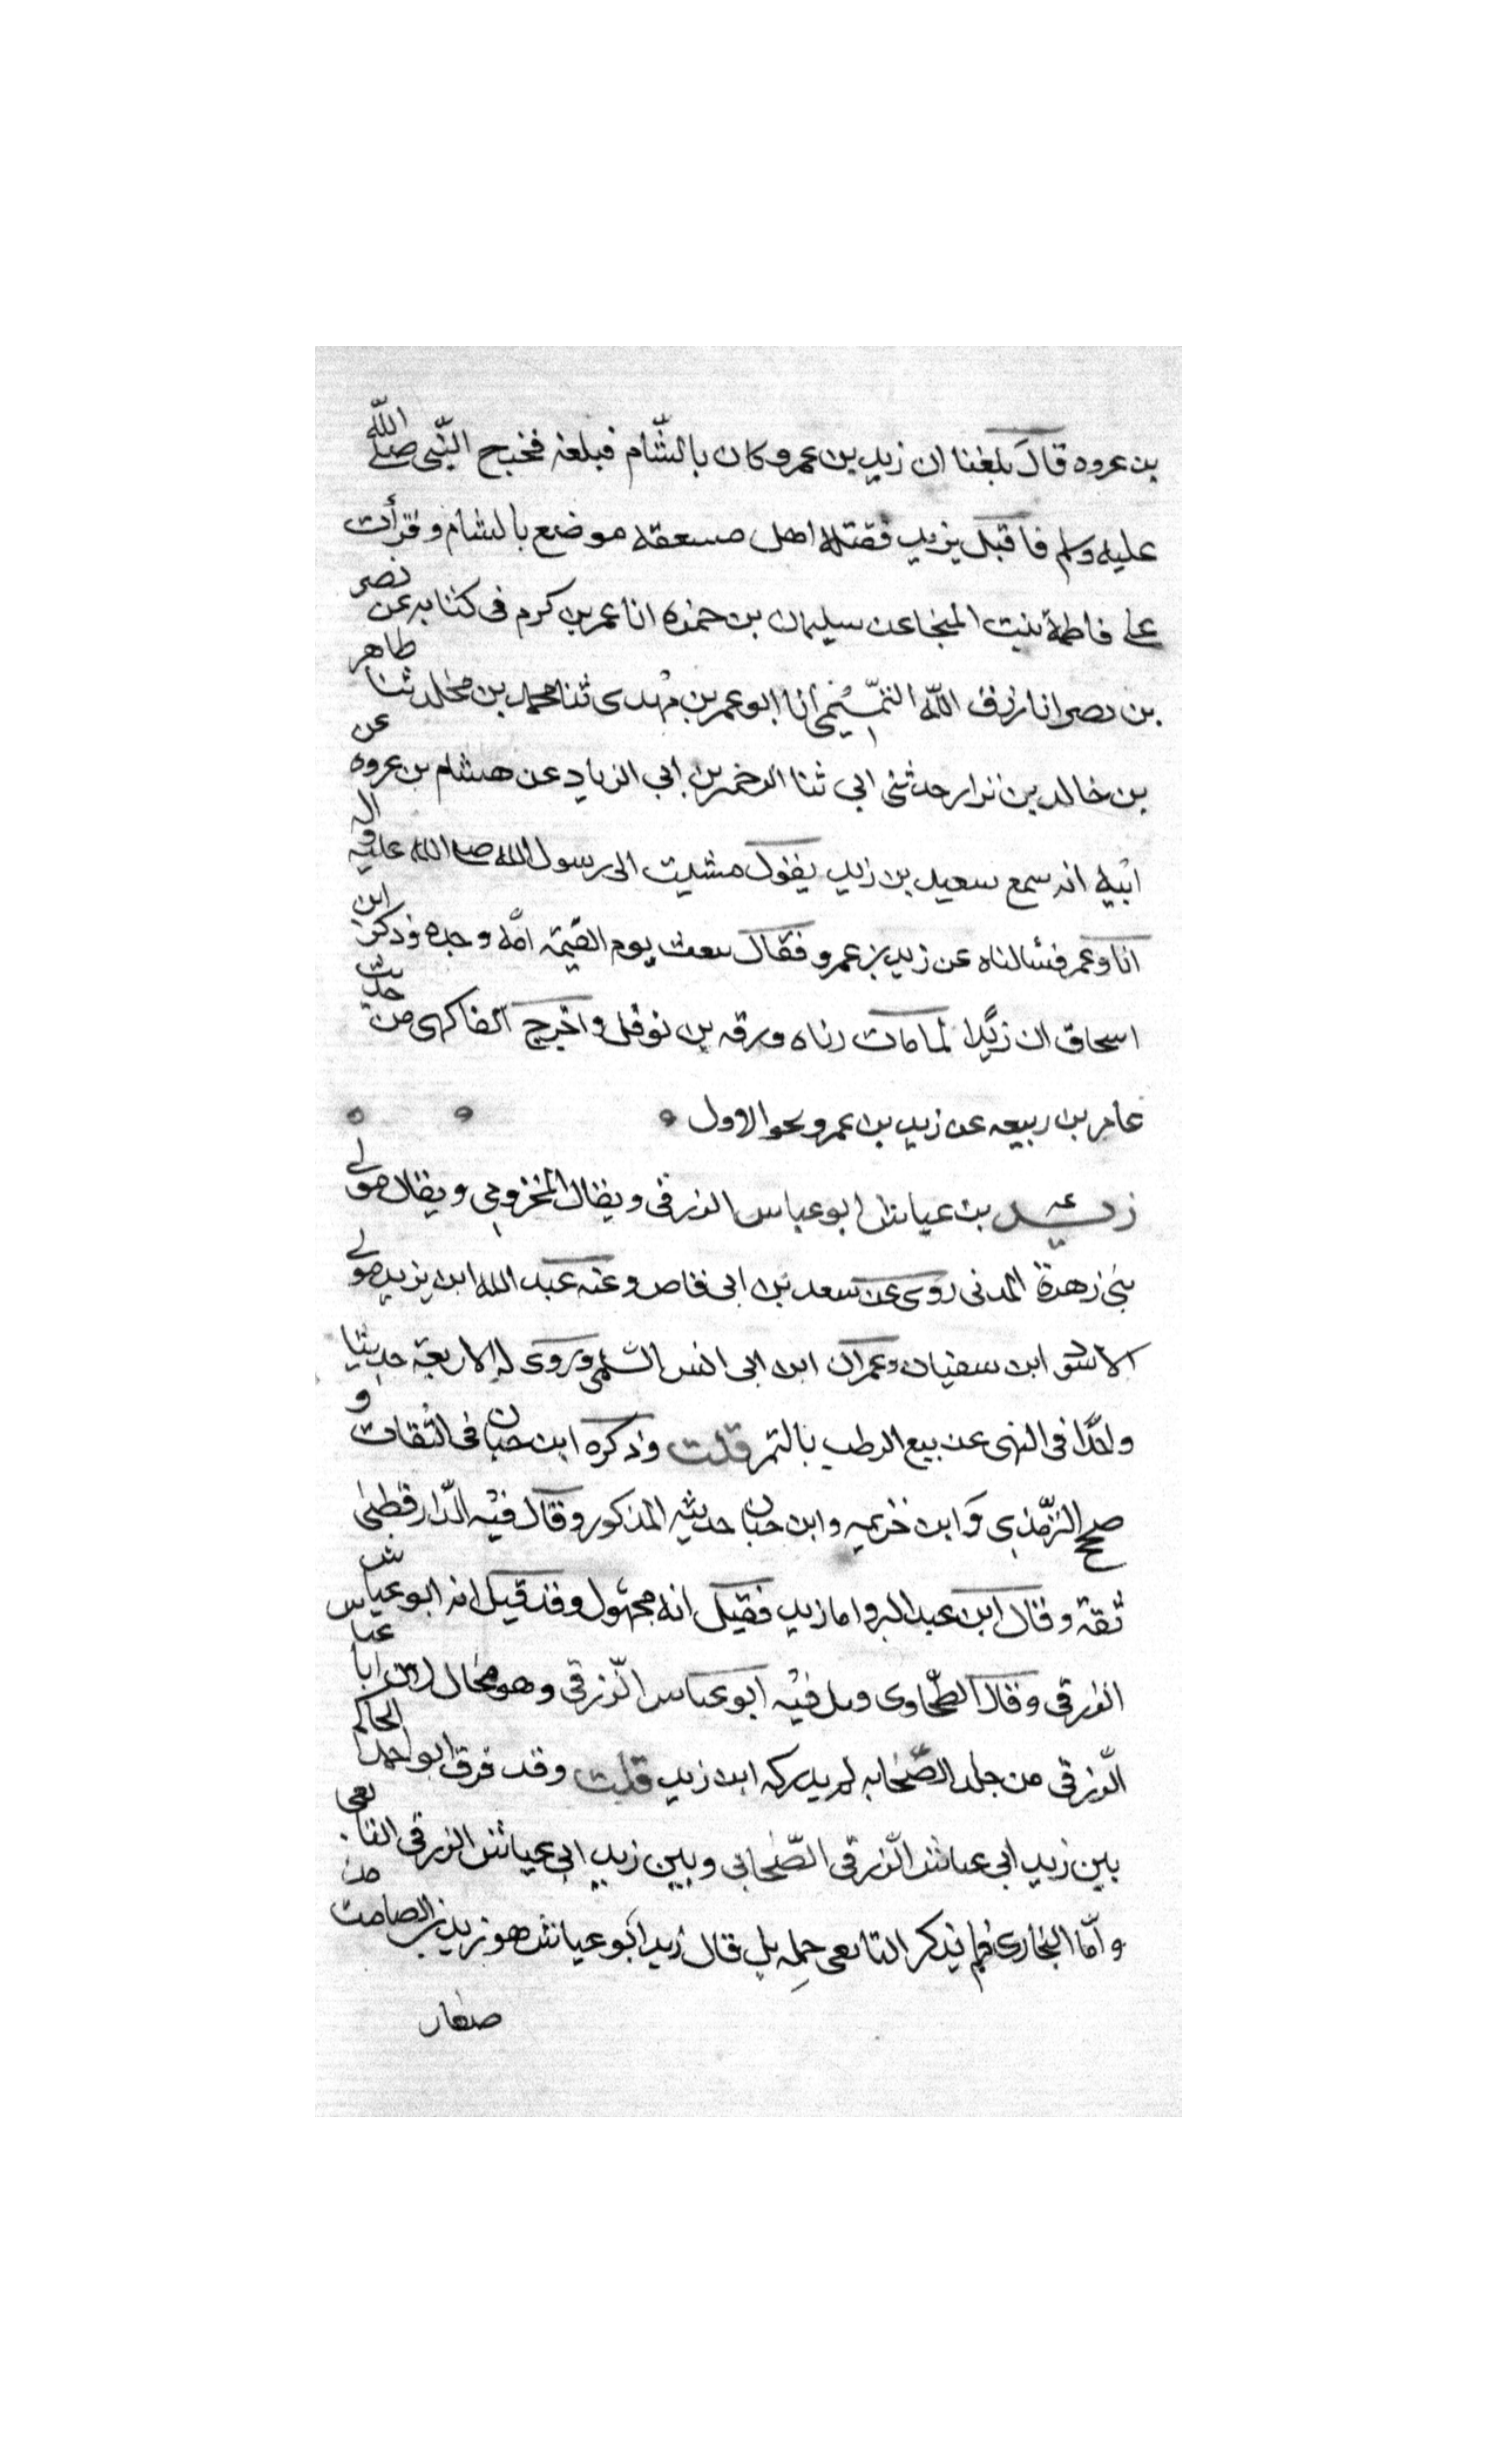 بن عروه قال بلغنا ان زيد بن عمرو كان بالشّام فبلغه فخبح النّبى صلى الله
عليه وسلم فاقبل يزيد فقتله اهل مسعقه موضع بالشام وقرأت
على فاطمة بنت المنجا عن سليمان بن حمزه انا عمر بن كرم فى كتابه عن نصر
بن نصر انا رزق الله التّميمى انا ابو عمر بن مهدى ثنا محمد بن مخلد ثنا طاهر
بن خالد بن نزار حدثنى ابى ثنا الرحمن بن ابي الزياد عن هشام بن عروه عن
ابيه انه سمع سعيد بن زيد يقول مشيت الى رسول الله صلى الله عليه واله
انا وعمر فسألناه عن زيد بن عمرو فقال يبعث يوم القيمة امّة وحده وذكر ابن
اسحاق ان زيدا لما مات رثاه ورقه بن نوفل واخرج الفاكهى من حديث
عامر بن ربيعه عن زيد بن عمرو نحو الاول
زيد عه بن عياش ابو عياس الزرقى ويقال المخزومى ويقال مولى
بنى زهرة المدنى روى عن سعد بن ابى وقاص وعنه عبد الله ابن يزيد مولى
الاسود ابن سفيان وعمران ابن ابى انس السلمى وروى له الاربعة حديثا
واحدًا فى النهى عن بيع الرطب بالتمر قلت وذكره ابن حبان فى الثقات و
صحح الترّمذي وَابن خزيمه وابن حبان حديثه المذكور وقال فيه الدّارقطنى
ثقة وقال ابن عبد البر واما زيد فقيل انه مجهول وقد قيل انه ابو عياش
الزرقى وقال الطّحاوى وىل فيه ابو عياس الزّرقى وهو محال لان ابا عيا
الزّرقى من جلد الصّحابه لم يدركه ابن زيد قلت وقد فرق ابو احمد الحاكم
بين زيد ابى عياش الزّرقى الصّحابى وبين زيد ابى عياش الزرقى التابعى
وامّا البخارى فلم يذكر التابعى جمله بل قال زيد ابو عياش هو زيد بن الصامت من
صغار